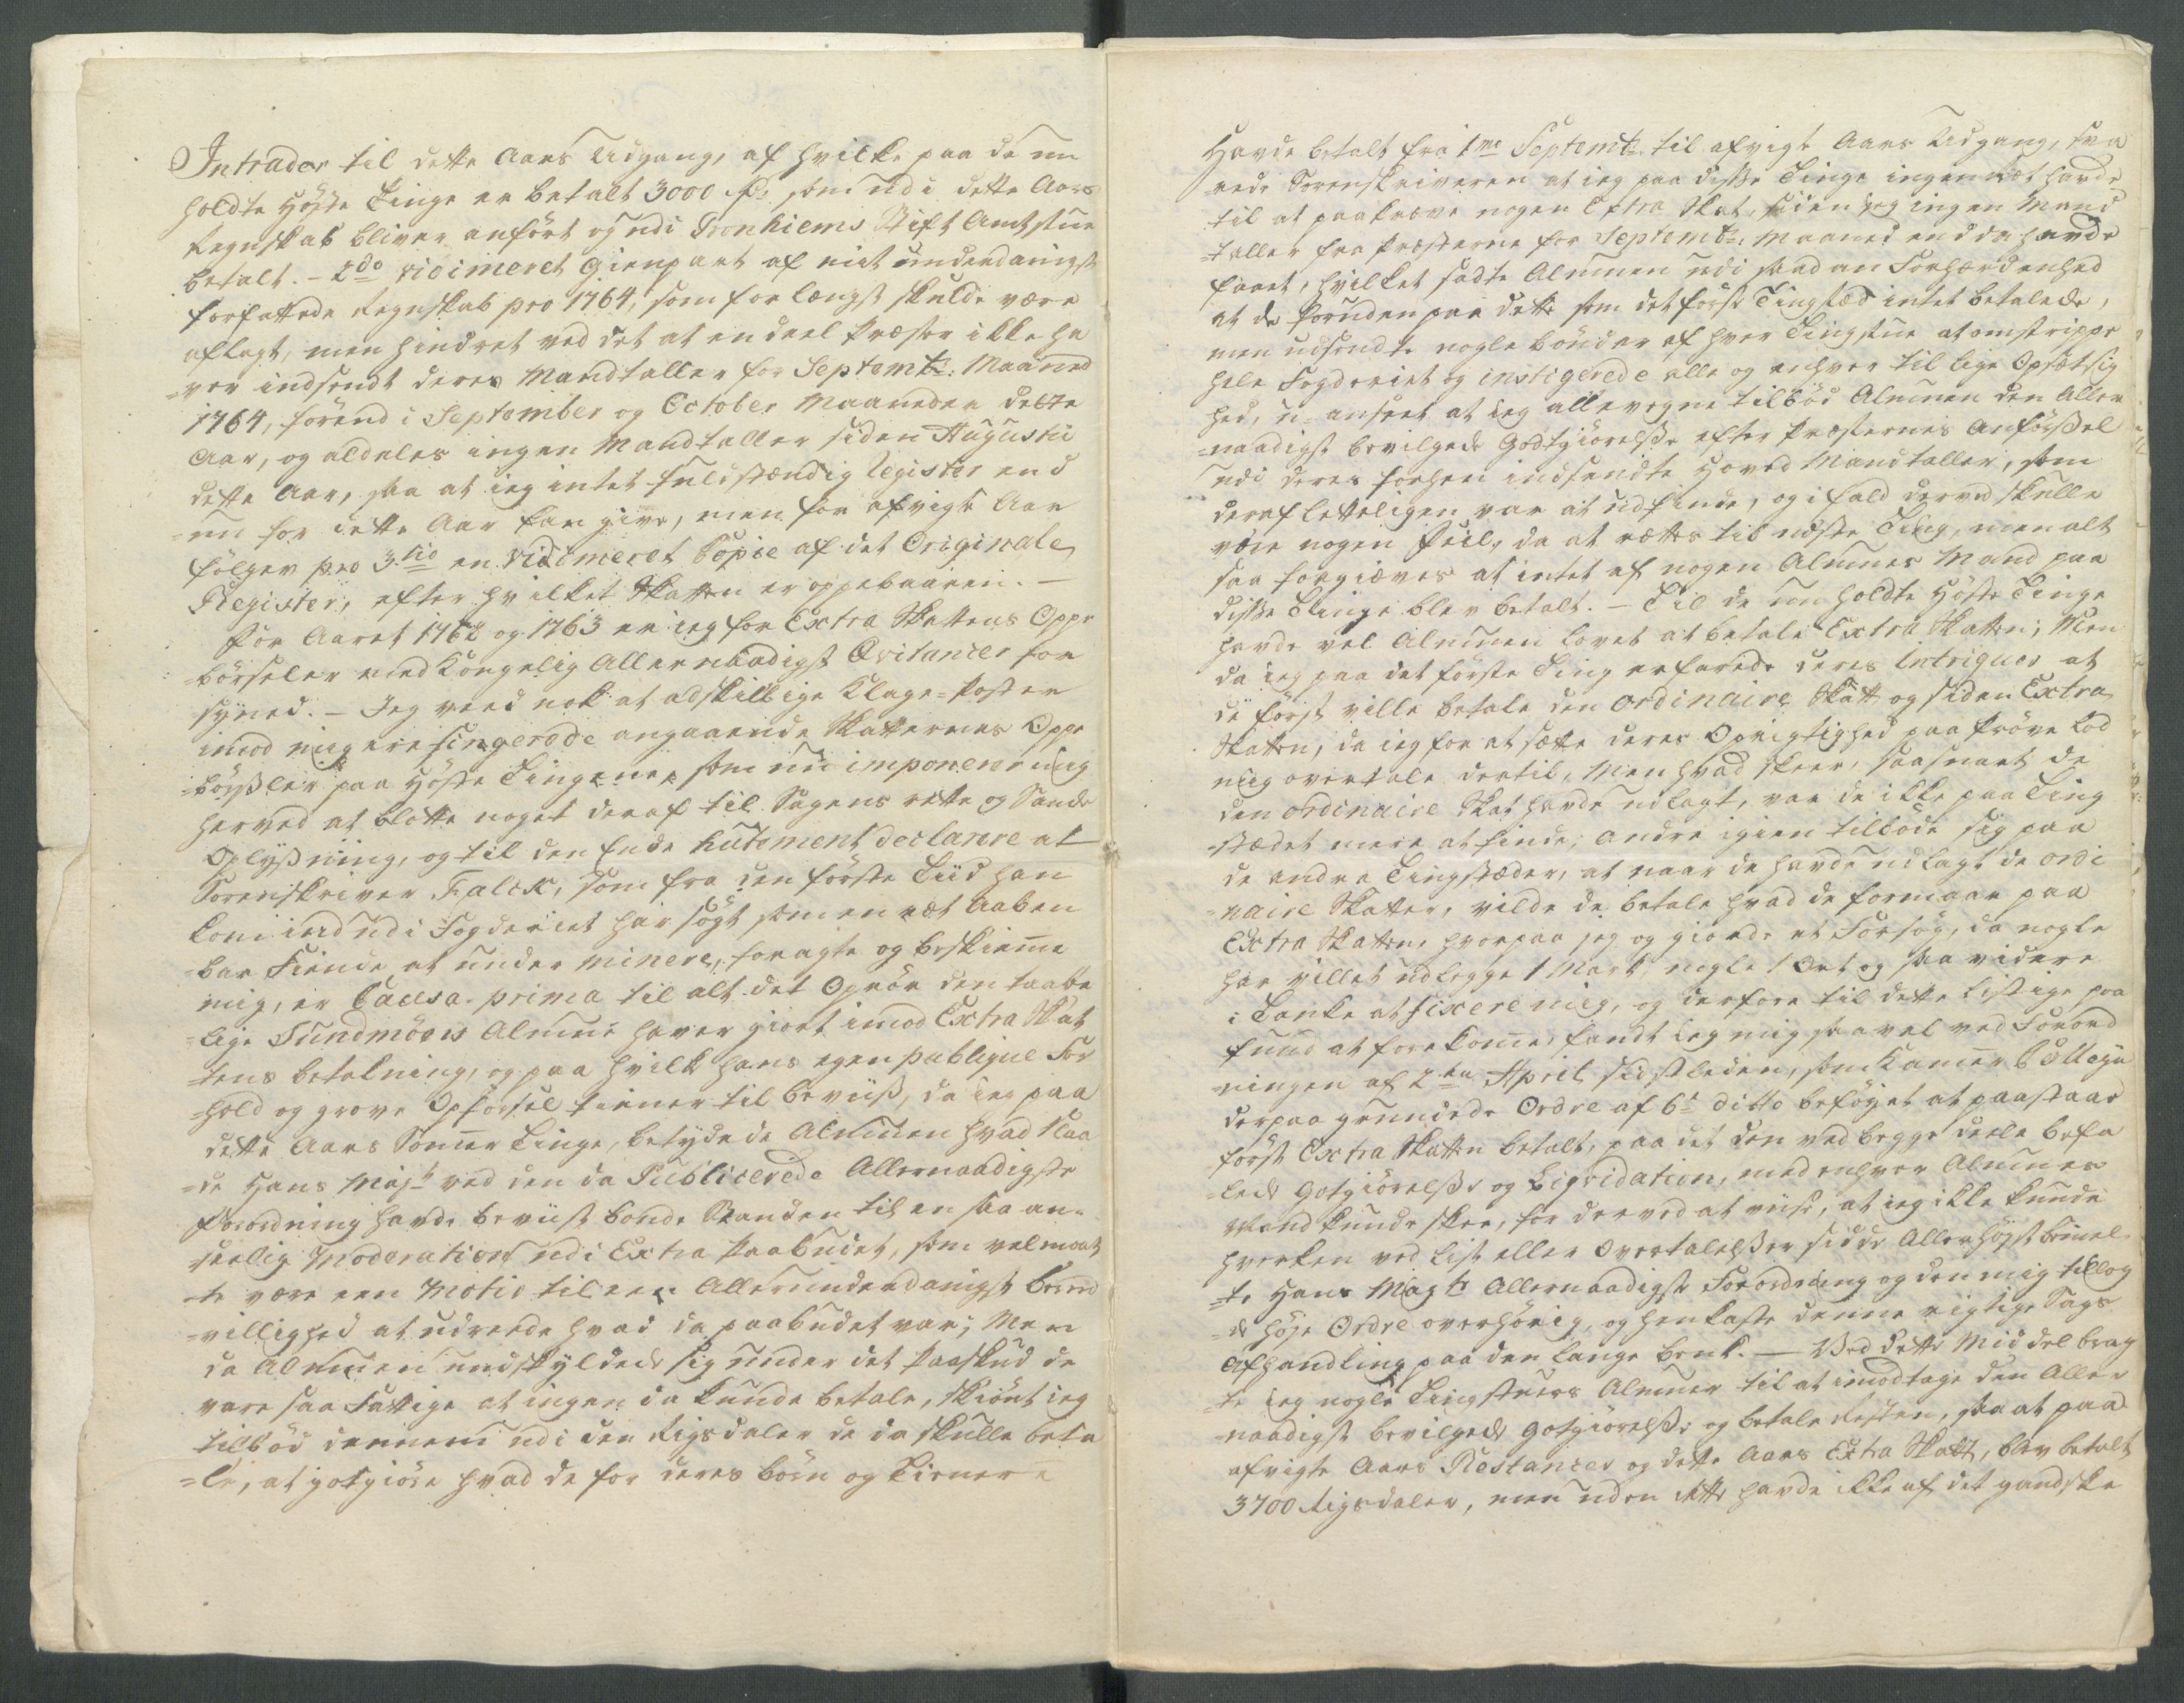 Intrader til dette Aars Udgang, af hvilke paa de nu
holdte Høste Tinge er betalt 3000 rd: som udi dette Aars
Regnskab bliver anført og udi Tronhiems Stift Amtstue
betalt. - 2do vidimeret Gienpart af mit underdanigst
forfattede Regnskab pro 1764, som for længst skulde være
aflagt, men hindret ved det at en deel Præster ikke ha
=ver indsendt deres Mandtaller for Septembr: Maaned
1764, førend i September og October Maaneder dette
Aar, og aldeles ingen Mandtaller siden Augustii
dette Aar, saa at ieg intet fuldstændig Register end
=nu for dette Aar kan give, men for afvigte Aar
følger pro 3tio en vidimeret Copie af det Originale
Register, efter hvilket Skatten er oppebaaren. -
For Aaret 1762 og 1763 er ieg for Extra Skattens Oppe
=børseler med Kongelig Allernaadigst Qvitancer for
syned. - Jeg veed nok at adskillige Klage-Poster
imod mig ere fingerede angaaende Skatternes Oppe
=børsler paa Høste Tingene, som nu imponerer mig
herved at blotte noget deraf til Sagens rette og Sande
Oplysning, og til den Ende hutement declarere at
Sorenskriver Falck, som fra den første Tiid han
kom ind udi Fogderiet har søgt som en ret Aaben
=bar Fiende at under minere, foragte og beskiemme
mig, er Causa prima til alt det Oprør den taabe
=lige Sundmøers Almue haver giort imod Extra Skat
=tens betalning, og paa hvilk hans egen publique For
=hold og grove Opførsel tiener til beviis, da ieg paa
dette Aars Sommer Tinge, betydede Almuen hvad Naa
=de Hans Majt ved den da Publicerede Allernaadigste
Forordning havde beviist bonde Standen til en saa an-
=seelig Moderation udi Extra Paabudet, som vel maat
=te være een Motiv til een Allerunderdanigst bered
=villighed at udreede hvad da paabudet var; Men
da Almuen undskyldede sig under det Paaskud de
vare saa Fattige at ingen da kunde betale, skiønt ieg
tilbød dennem udi den Rigsdaler de da skulle beta
=le, at gotgiøre hvad de for deres børn og Tienere
Havde betalt fra 1me Septembr. til afvigte Aars Udgang, sva
rede Sorenskriveren at ieg paa disse Tinge ingen Ræt havde
til at paakræve nogen Extra Skat, siden ieg ingen Mand
=taller fra Præsterne for Septembr: Maaned endda havde
faaet, hvilket sadte Almuen udi saadan Forhærdenhed
at de foruden paa dette som det første Tingsted intet betalede,
men udsendte nogle bønder af hver Tingstue at omstrippe
hele Fogderiet og instigerede alle og enhver til lige Opsætsig
hed, u-anseet at ieg allevegne tilbød Almuen den Aller
=naadigst bevilgede Godtgiørelse efter Præsternes Anførsel
udi deres forhen indsendte Hoved Mandtaller, som
deraf letteligen var at udfinde, og ifald derved skulle
være nogen Feil, da at rettes til neste Ting, men alt
saa forgiæves at intet af nogen Almues Mand paa
disse Tinge blev betalt. - Til de nu holdte Høste Tinge
havde vel Almuen lovet at betale Extra Skatten; Men
da ieg paa det første Ting erfarede deres Intriguer at
de først ville betale den ordinaire Skatt og siden Extra
Skatten, da ieg for at sætte deres Oprigtighed paa Prøve lod
mig overtale dertil, Men hvad skeer, saasnart de
den ordinaire Skat havde udlagt, var de ikke paa Ting
=stædet mere at finde; andre igien tilbøde sig paa
de andre Tingstæder, at naar de havde udlagt de ordi
=naire Skatter, vilde de betale hvad de formaar paa
Extra Skatten, hvorpaa jeg og giorde et Forsøg, da nogle
har villet udlegge 1 Mark, nogle 1 Ort og saa videre
i Tanke at fixere mig, og derfore til dette listige paa
fund at forekomme, fandt ieg mig saavel ved Forord
=ningen af 2den April sidstleden, som Kammer Collegii
derpaa grundede Ordre af 6te ditto beføyet at paastaae
først Extra Skatten betalt, paa det den ved begge deele befa
=lede Gotgiørelse og Liqvidation, med enhver Almues
Mand kunde skee, for derved at viise, at ieg ikke kunde
hverken ved List eller Overtalelser sidde Allerhøyst bemel
=te Hans Majts Allernaadigste Forordning og den mig tillag
=de høje Ordre overhørig, og henkaste denne vigtige Sags
Afhandling paa den lange benk. - Ved dette Middel brag
=te ieg nogle Tingstuers Almuer til at imodtage den Aller
=naadigst bevilgede Gotgiørelse og betale Resten, saa at paa
afvigte Aars Restancer og dette Aars Extra Skatt, blev betalt
3700 Rigsdaler, men uden dette havde ikke af det gandske